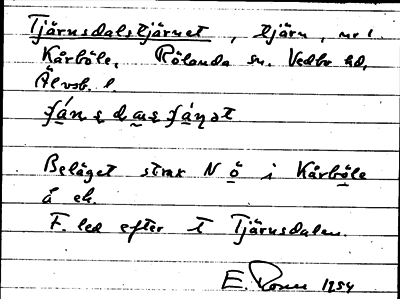 Tjärnsdalstjärnet, tjärn, nr 1
Kårböle, Rölanda sn. Vedbo hd,
Älvsb. l.
Beläget strax N ö i Kårböle
å ek.
F. led efter t Tjärnsdalen.
E. 1954